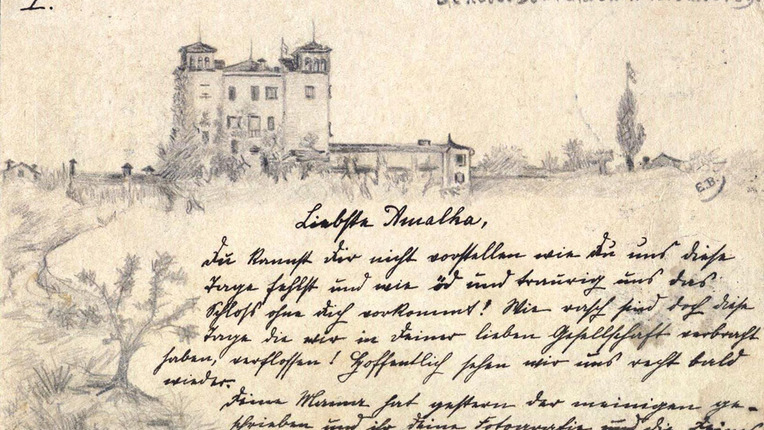 I.
E.B.
Liebste Amalka,
Du kannst Dir nicht vorstellen wie Du uns diese
Tage fehlst und wie öd und traurig uns das
Schloss ohne Dich vorkommt! Wie rasch sind doch diese
Tage die wir in Deiner lieben Gesellschaft verbracht
haben, verflossen! Hoffentlich sehen wir uns recht bald
wieder.
Deine Mama hat gestern der meinigen ge-
schrieben und ihr deine Fotografie und die